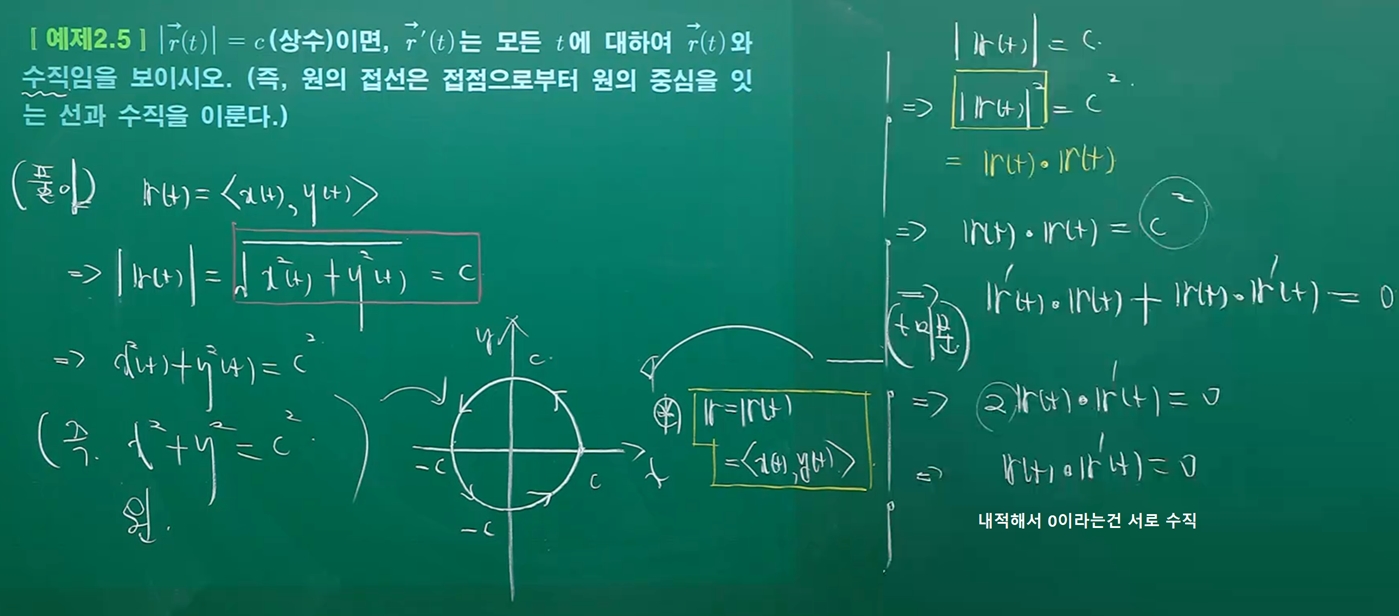 [예제2.5] |r⃗(t)| = c(상수)이면, r⃗ ′(t)는 모든 t에 대하여 r⃗(t)와
수직임을 보이시오. (즉, 원의 접선은 접점으로부터 원의 중심을 잇
는 선과 수직을 이룬다.)
(풀이) r(t) = <x(t), y(t)>
=> |r(t)| = √(x²(t) + y²(t)) = c
=> x²(t) + y²(t) = c²
(즉. x² + y² = c².
원.)
y
c
-c
c
x
-c
r = r(t)
= <x(t), y(t)>
|r(t)| = c.
=> |r(t)|² = c².
= r(t)•r(t)
=> r(t)•r(t) = c²
=> r′(t)•r(t) + r(t)•r′(t) = 0
(t미분)
=> 2r(t)•r′(t) = 0
=> r(t)•r′(t) = 0
내적해서 0이라는건 서로 수직